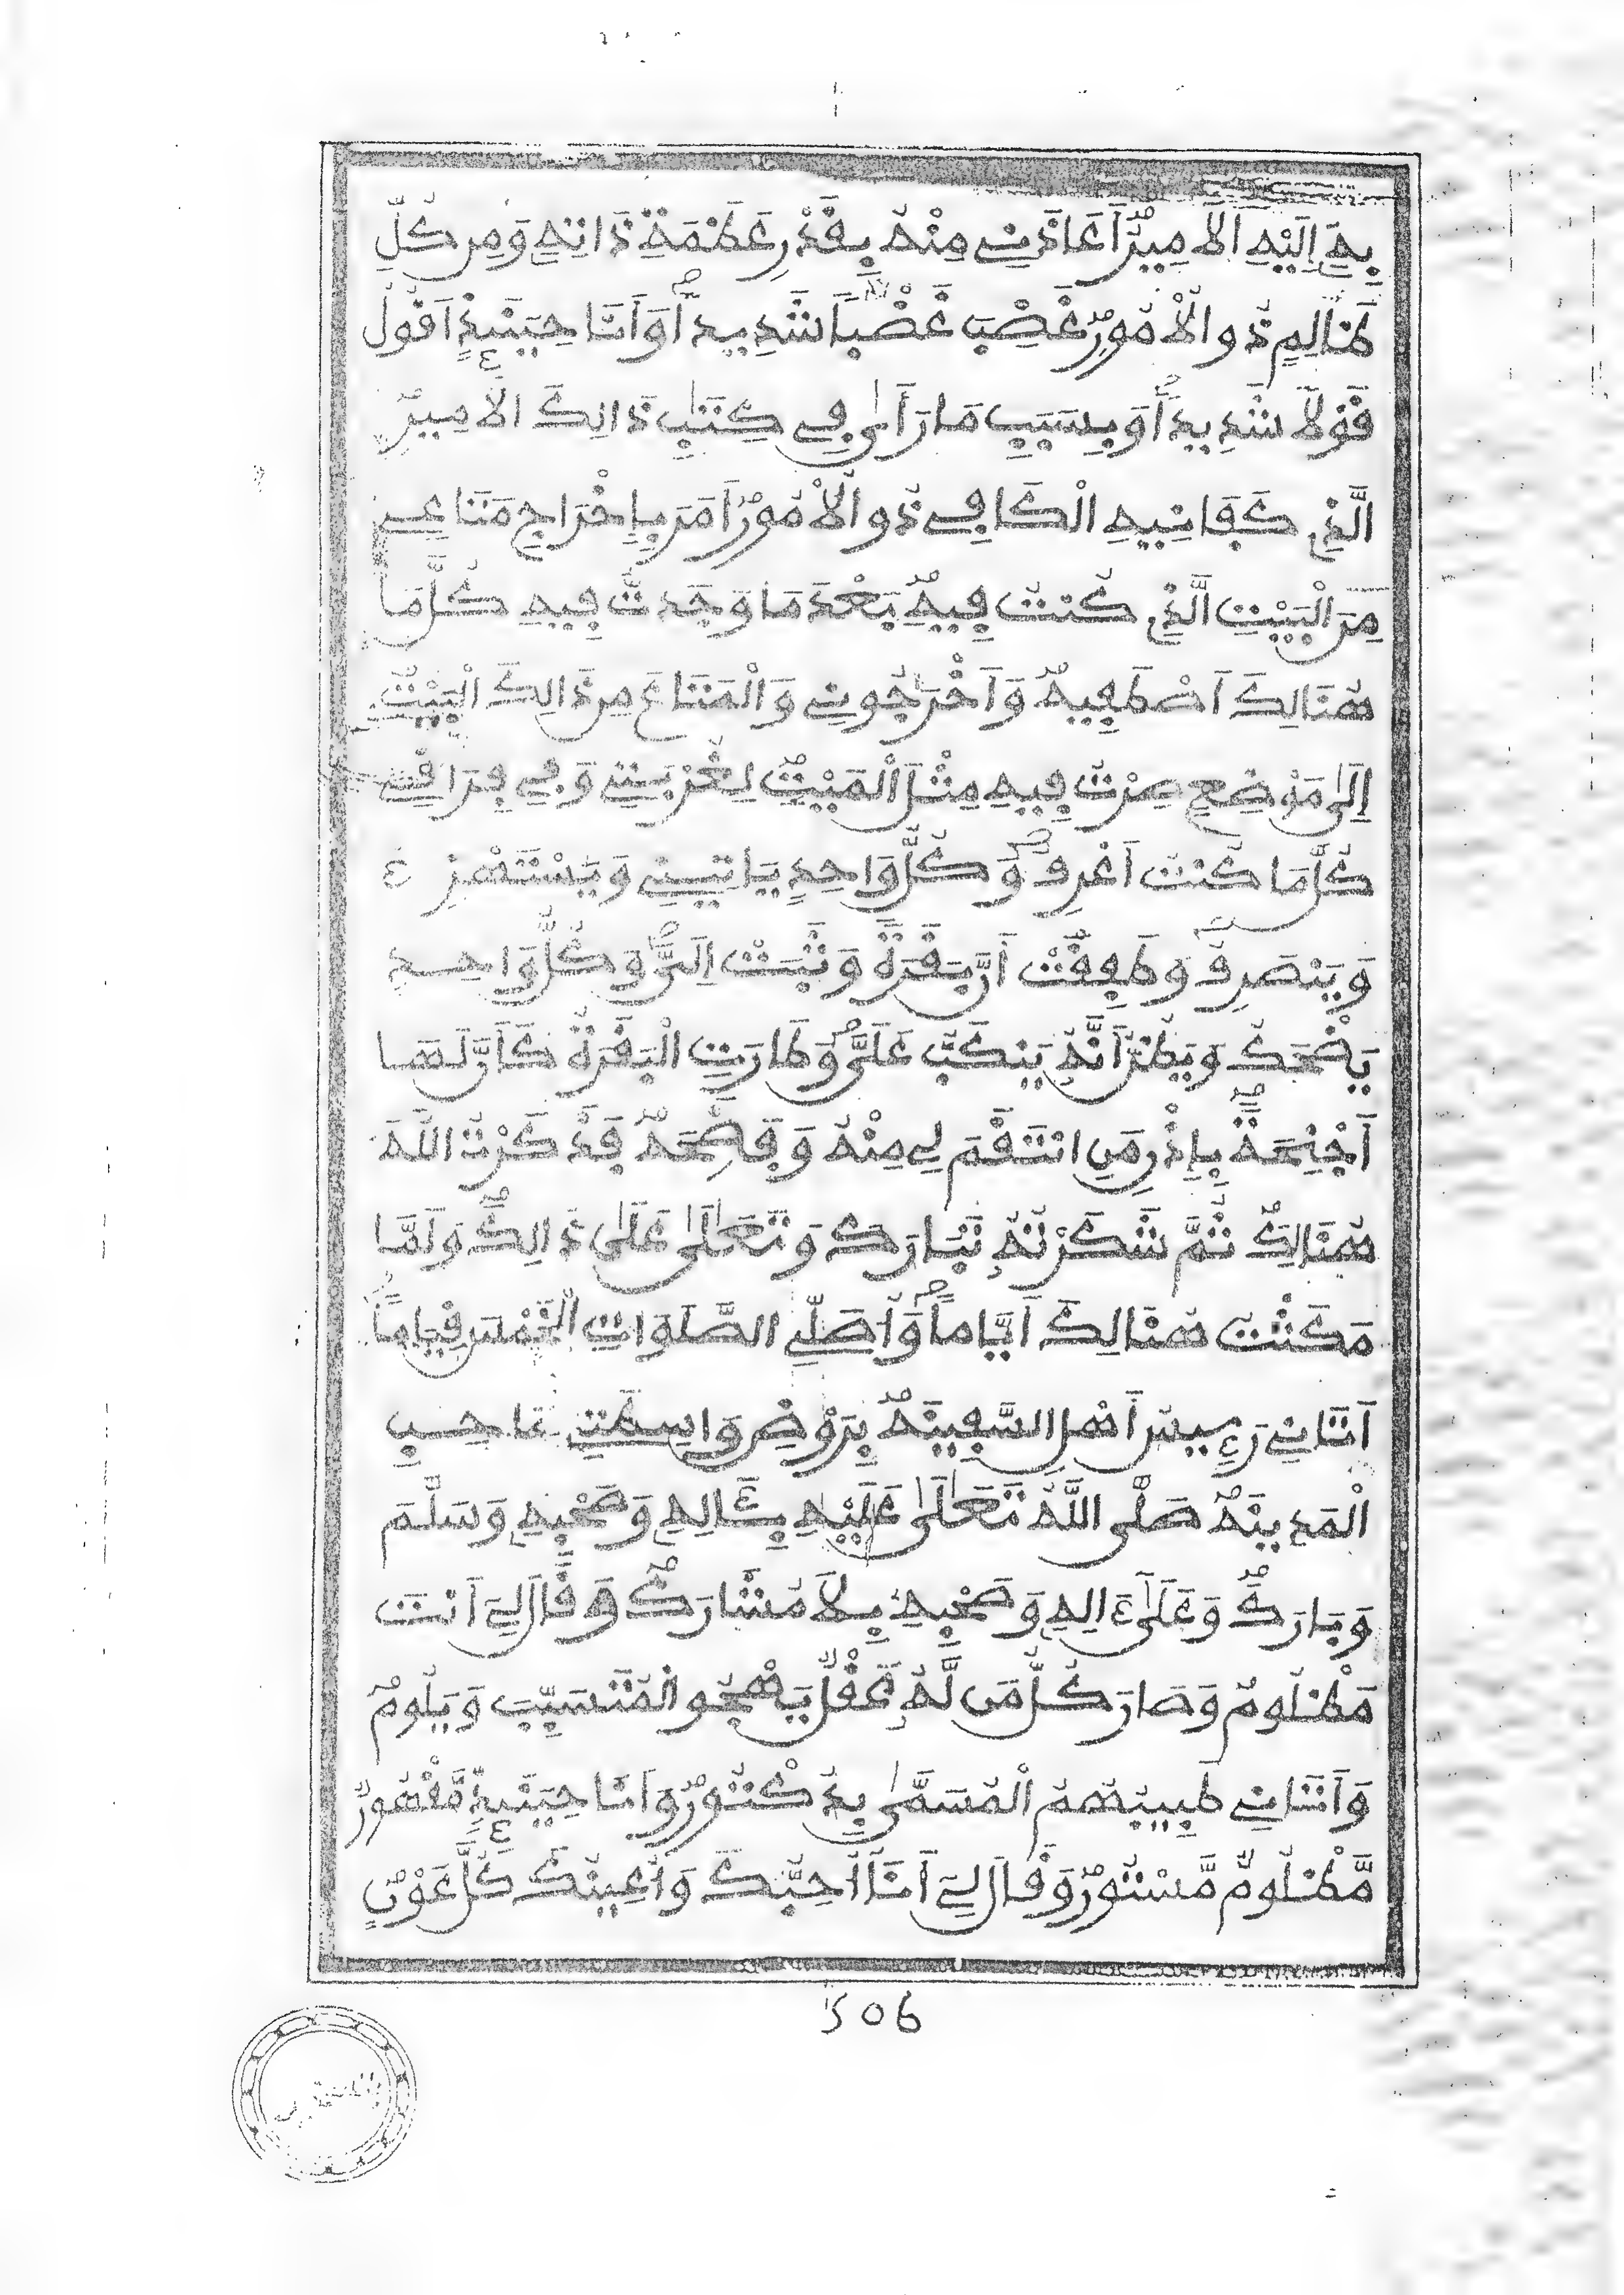 بِهِۦٓ إِلَيْهِ الَامِيرُ أَعَاذَنِي مِنْهُ بِقَدْرِ عَظَمَةِ ذَاتِهِ وَمِن كُلِّ
ظَالِمٍ ذُو الْأُمُورِ غَضِبَ غَضْباً شَدِيداً وَأَنَا حِينَئِذٍ اَقُولُ
قَوْلاً شَدِيداً وَبِسَبَبِ مَا رَأَىٰ فِي كِتَٰبِ ذَالِكَ الَامِيرِ
الَّذِي كَفَانِيهِ الْكَافِي ذُو الْأُمُورِ أَمَرَ بِإِخْرَاجِ مَتَاعِي
مِنَ الْبَيْتِ الَّذِي كُنتُ فِيهِ بَعْدَ مَا وَجَدتُّ فِيهِ كُلَّمَا
هُنَالِكَ اَصْطَفِيهِ وَأَخْرَجُونِي وَالْمَتَاعَ مِن ذَالِكَ الْبَيْتِ
إِلَىٰ مَوْضِعٍ صِرْتُ فِيهِ مِثْلَ الْمَيِّتِ لِغُرْبَتِي وَفِي فِرَاقِي
كُلَّمَا كُنتُ اَعْرِفُ وَكُلُّ وَاحِدٍ يَاتِينِي وَيَسْتَهْزِئُ
وَيَنْصَرِفُ وَطَفِقَتْ أَنَّ بَقَرَةً وَثَبَتْ إِلَيَّ وَكُلُّ وَاحِدٍ
يَضْحَكُ وَيَظُنُّ أَنَّهُ يَنكَبُّ عَلَيَّ وَطَارَتِ الْبَقَرَةُ كَأَنَّ لَهَا
أَجْنِحَةً بِإِذْنِ مَنِ انْتَقَمَ لِي مِنْهُ وَقَدْ ذَكَرْتُ اللَّهَ
هُنَالِكَ ثُمَّ شَكَرْتُهُ تَبَارَكَ وَتَعَٰلَىٰ عَلَىٰ ذَالِكَ وَلَمَّا
مَكَثْتُ هُنَالِكَ أَيَّاماً وَأُصَلِّي الصَّلَوَاتِ الْخَمْسَ قِيَاماً
أَتَانِي رَءِيسُ أَهْلِ السَّفِينَةِ بِرَوْضِ وَاسِطَتِي مَاحِبِ
الْمَدِينَةِ صَلَّى اللَّهُ تَعَٰلَىٰ عَلَيْهِ بِـَٔالِهِ وَصَحْبِهِ وَسَلَّمَ
وَبَارَكَ وَعَلَىٰٓ ءَالِهِ وَصَحْبِهِ بِلَا مُشَارَكَةٍ وَقَالَ لِيَ أَنتَ
مَظْلُومٌ وَصَارَ كُلُّ مَن لَّهُ عَقْلٌ يَهْجُو الْمُتَسَبِّبَ وَيَلُومُ
وَأَتَانِي طَبِيبُهُمُ الْمُسَمَّىٰ بِدُكْتُورُ وَأَنَا حِينَئِذٍ مَّقْهُورٌ
مَّظْلُومٌ مَّسْتُورٌ وَقَالَ لِيَ أَنَا أُحِبُّكَ وَأُعِينُكَ كُلَّ عَوْنٍ
506